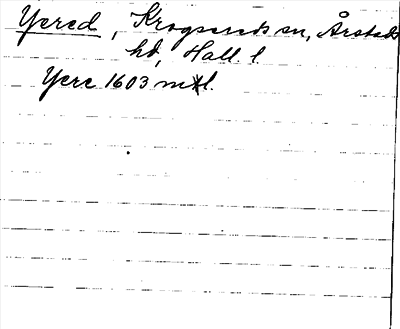 Yered, Krogsereds sn, Årstads
hd, Hall. l.
Yere 1603 mtl.